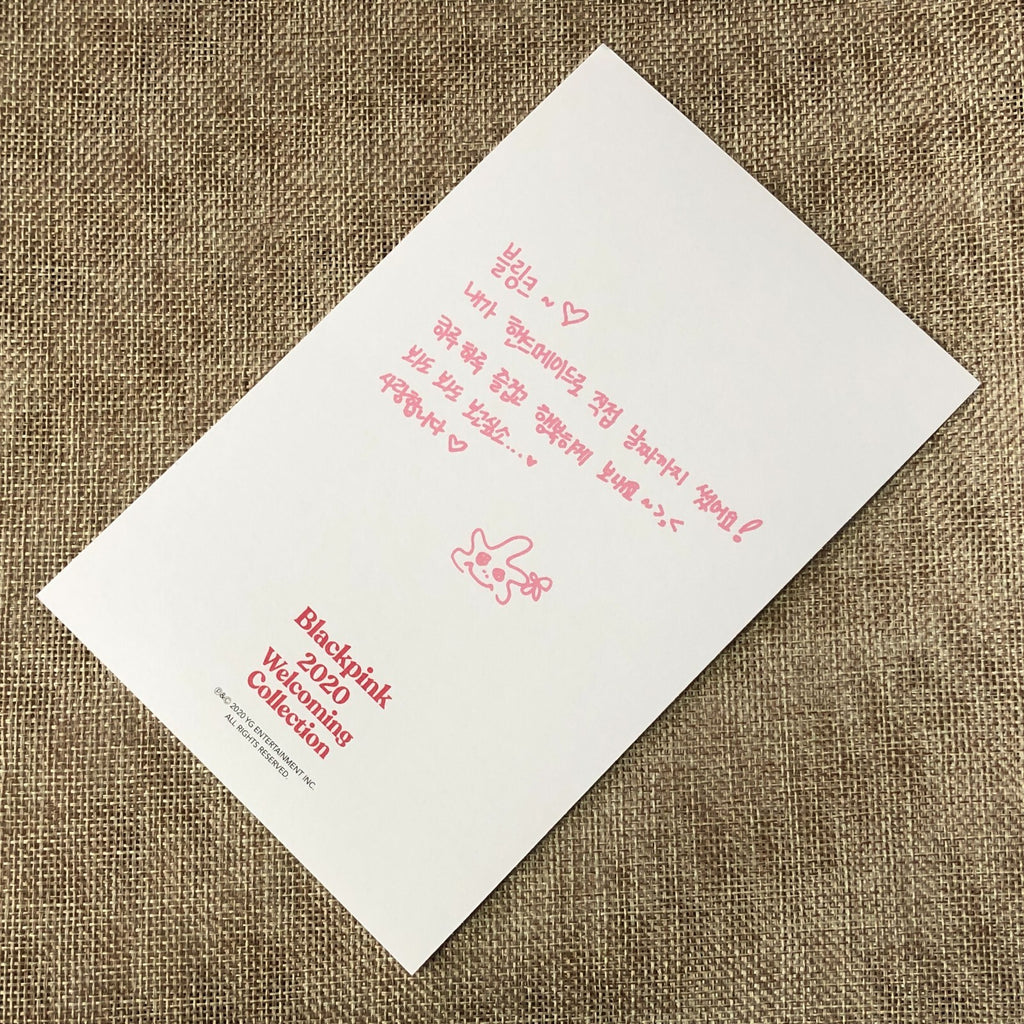 블링크 ~ ♡
내가 핸드메이드로 직접 날짜까지 썼어요!
하루 하루 즐겁고 행복하게 보내요 ~>,<
뵈도 뵈도 보고싶소...♥
사랑합니다 ♡
Blackpink
2020
Welcoming
Collection
℗&© 2020 YG ENTERTAINMENT INC.
ALL RIGHTS RESERVED.